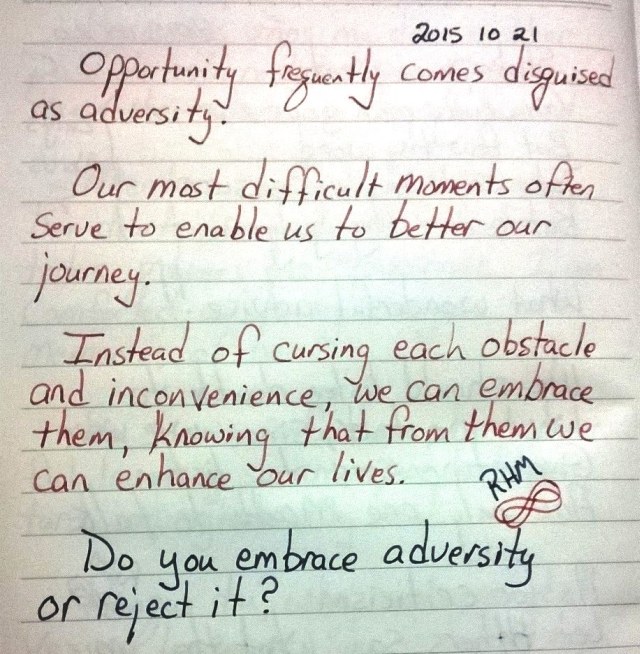 2015 10 21
Opportunity frequently comes disguised
as adversity.
Our most difficult moments often
serve to enable us to better our
journey.
Instead of cursing each obstacle
and inconvenience, we can embrace
them, knowing that from them we
can enhance our lives.
RHM
Do you embrace adversity
or reject it?